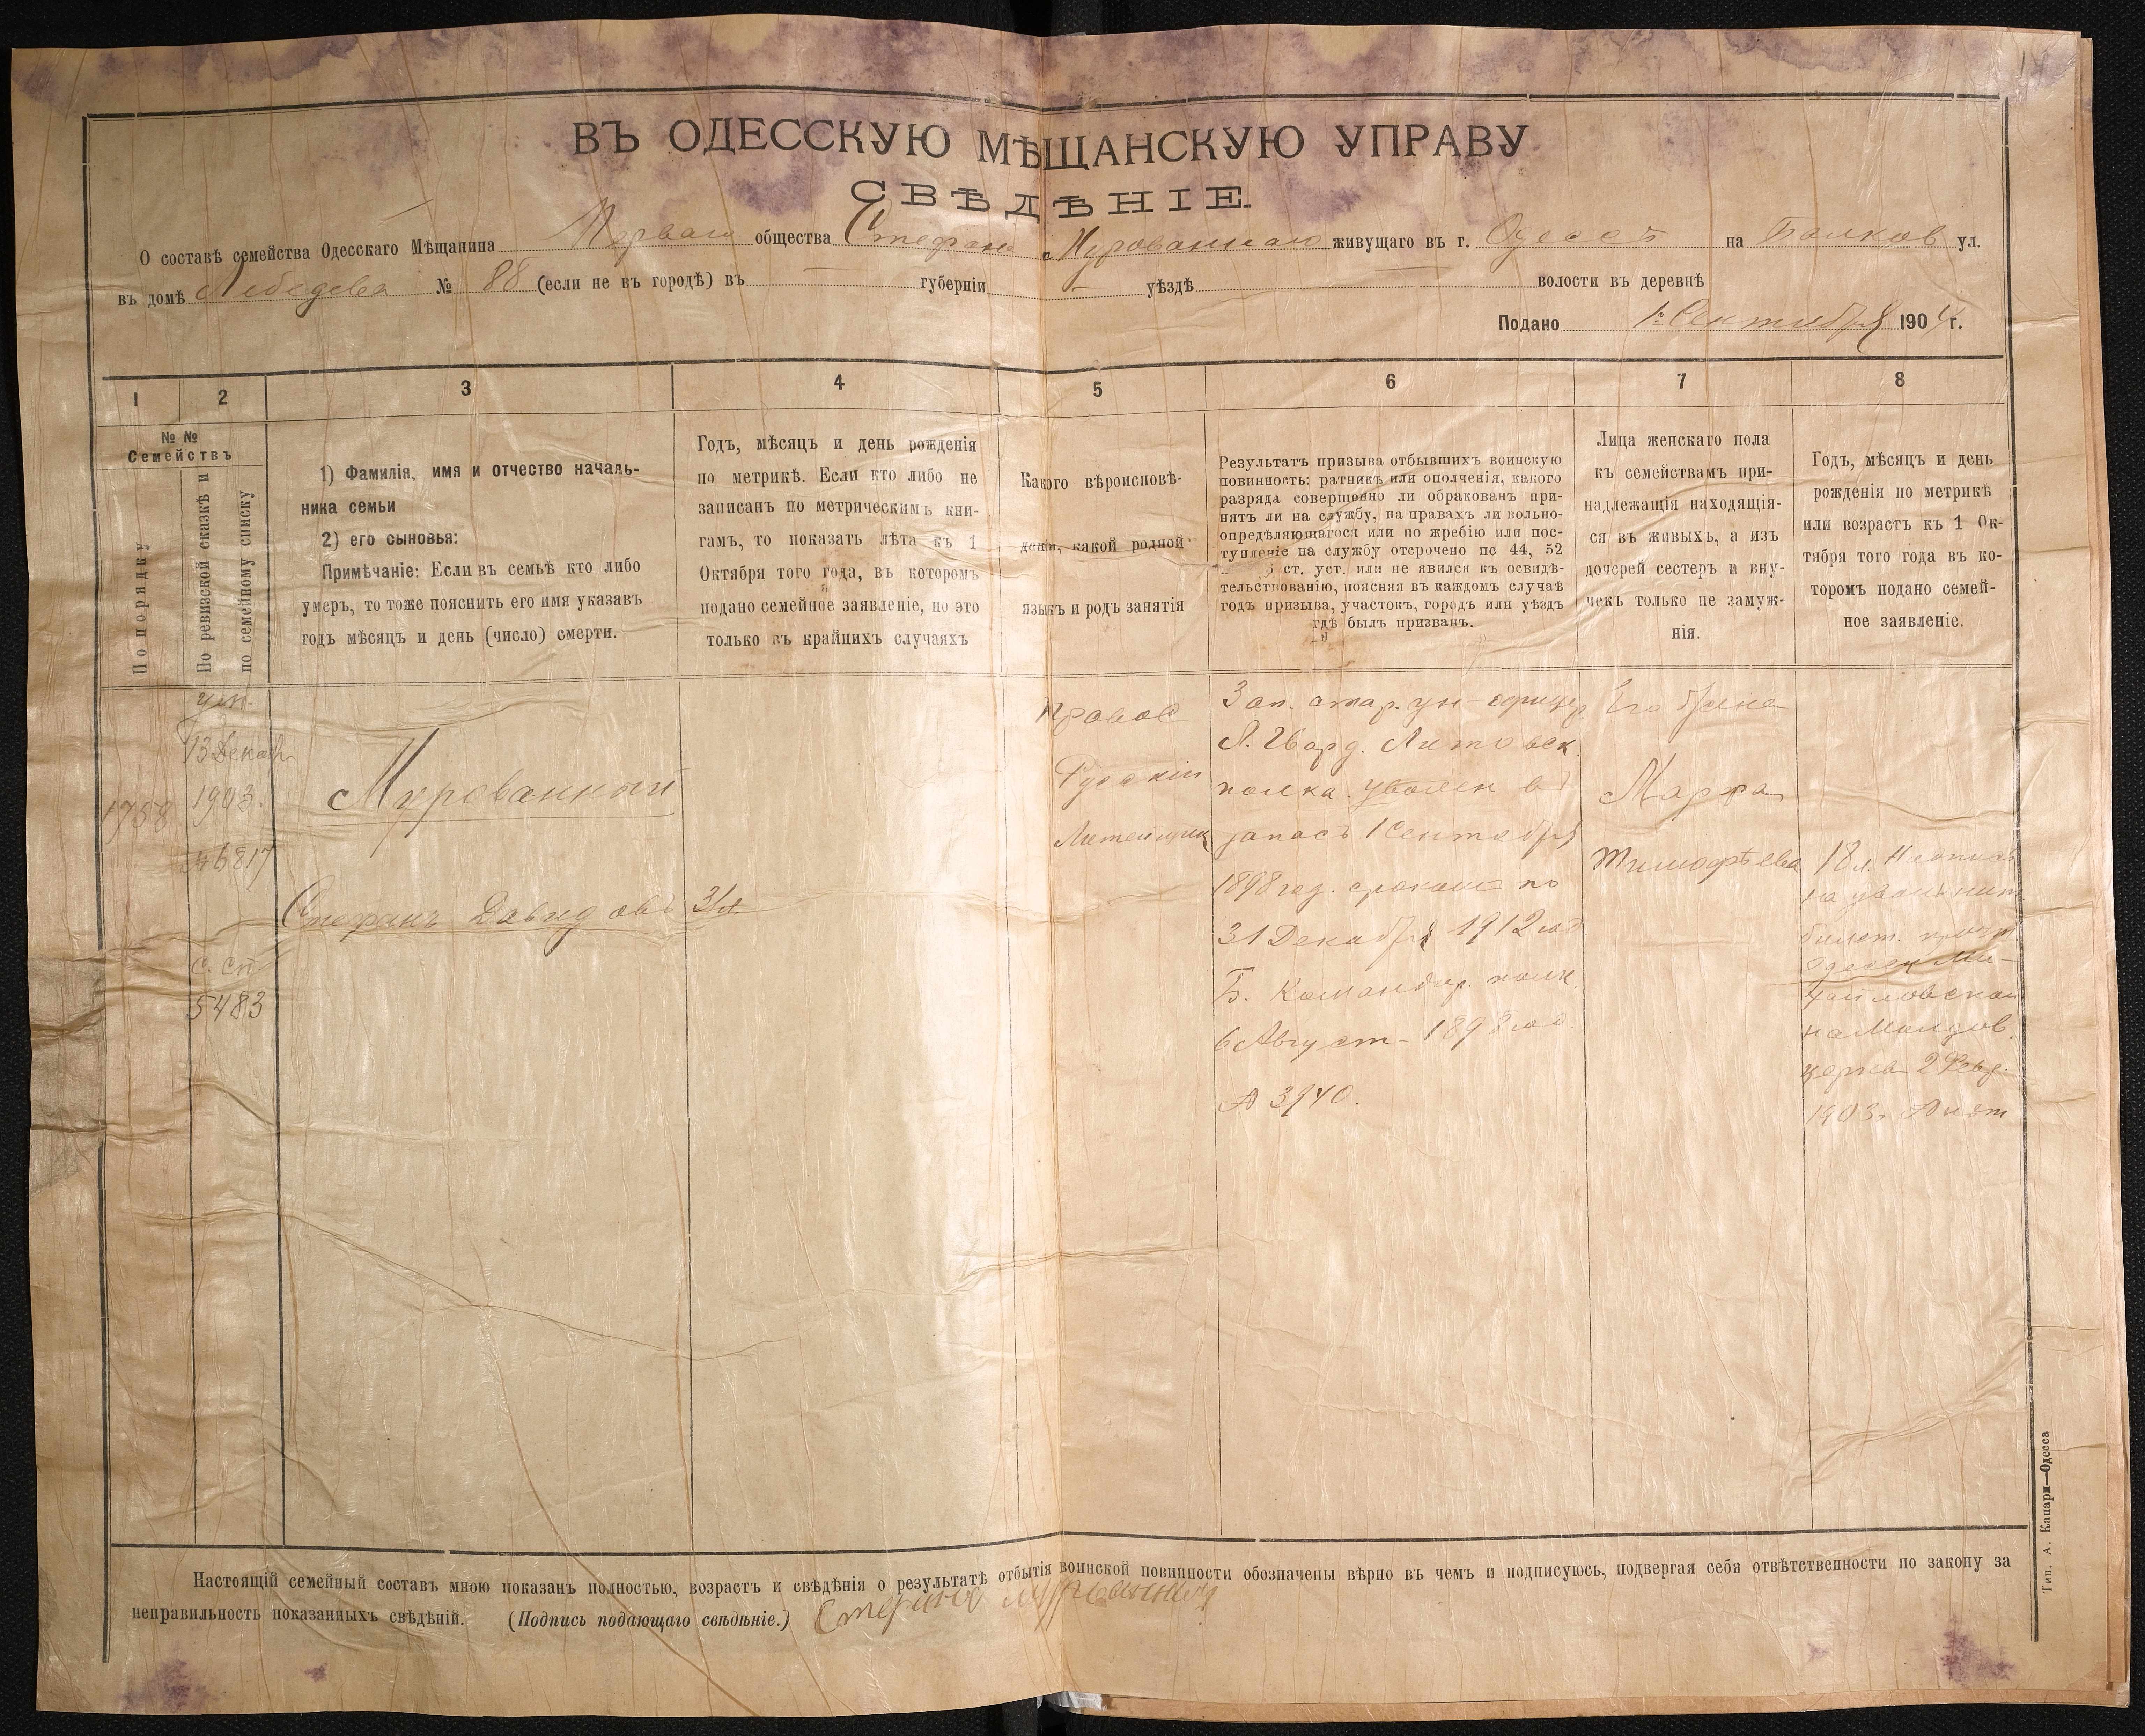 ВЪ ОДЕССКУЮ МѢЩАНСКУЮ УПРАВУ
СВѢДѢНІЕ.
О составѣ семейства Одесскаго Мѣщанина Перваго общества Стефана Мурованнаго живущаго въ г. Одессѣ на Балков ул.
въ домѣ Лебедева № 88 (если не въ городѣ) въ — губерніи — уѣздѣ — волости въ деревнѣ
Подано 1го Сентября 1904 г.
1 2 3 4 5 6 7 8
№ №
Семействъ
По порядку
По ревизской сказкѣ и
по семейному списку
1) Фамилія, имя и отчество началь-
ника семьи
2) его сыновья:
Примѣчаніе: Если въ семьѣ кто либо
умеръ, то тоже пояснить его имя указавъ
годъ мѣсяцъ и день (число) смерти.
Годъ, мѣсяцъ и день рожденія
по метрикѣ. Если кто либо не
записанъ по метрическимъ кни-
гамъ, то показать лѣта къ 1
Октября того года, въ которомъ
подано семейное заявленіе, но это
только въ крайнихъ случаяхъ
Какого вѣроисповѣ-
данія, какой родной
языкъ и родъ занятія
Результатъ призыва отбывшихъ воинскую
повинность: ратникъ или ополченія, какого
разряда совершенно ли обракованъ при-
нятъ ли на службу, на правахъ ли вольно-
опредѣляющагося или по жребію или пос-
тупленіе на службу отсрочено по 44, 52
ст. уст. или не явился къ освидѣ-
тельствованію, поясняя въ каждомъ случаѣ
годъ призыва, участокъ, городъ или уѣздъ
гдѣ былъ призванъ.
Лица женскаго пола
къ семействамъ при-
надлежащія находящія-
ся въ живыхъ, а изъ
дочерей сестеръ и вну-
чекъ только не замуж-
нія.
Годъ, мѣсяцъ и день
рожденія по метрикѣ
или возрастъ къ 1 Ок-
тября того года въ ко-
торомъ подано семей-
ное заявленіе.
1758
13 Декабр
1903.
46817
С. сп
5483
Мурованный
Стефанъ Давидовъ
31 л.
Правос
Русскій
Литейщик
Зап. стар. ун-офицер
Л. Гвард. Литовск
полка. уволен въ
запасъ 1 Сентября
1898 год. срокомъ по
31 Декабря 1912 год
Б. Командир. полк.
6 Август 1898 год.
№ 3940.
Его жена
Марфа
Тимофѣева
18 л.
на увольнит
билет.
Одесск Ми-
хайловской
на Молдов.
церкв 2 Февр.
1903 г.
Настоящій семейный составъ мною показанъ полностью, возрастъ и свѣдѣнія о результатѣ отбытія воинской повинности обозначены вѣрно въ чемъ и подписуюсь, подвергая себя отвѣтственности по закону за
неправильность показанныхъ свѣдѣній. (Подпись подающаго свѣдѣніе.) Стефанъ Мурованный
Тип. А. Капари—Одесса